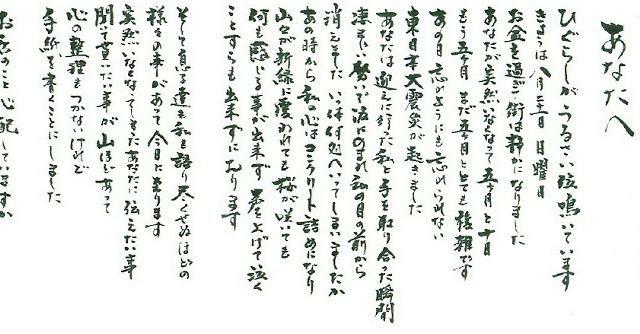 あなたへ
ひぐらしがうるさい位鳴いています
きょうは八月二十一日日曜日
お盆を過ぎ街は静かになりました
あなたが突然いなくなって五ヶ月と十日
もう五ヶ月まだ五ヶ月とても複雑です
あの日忘れようにも忘れられない
東日本大震災が起きました
あなたは迎えに行った私と手を取り合った瞬間
凄まじい勢いで波にのまれ私の目の前から
消えました いったい何処へいってしまいましたか
あの時から私の心はコンクリート詰めになり
山々が新緑に覆われても桜が咲いても
何も感じる事が出来ず 声を上げて泣く
ことすらも出来ずにおります
そして息子達も私も語り尽くせぬほどの
様々の事があって今日に至ります
突然いなくなってしまったあなたに伝えたい事
聞いて貰いたい事が山ほどあって
心の整理もつかないけれど
手紙を書くことにしました
お家のこと心配していますか